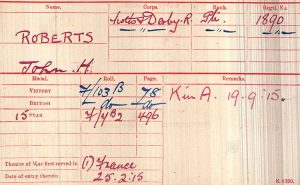 Name. Corps. Rank. Regtl. No.
ROBERTS Notts & Derby. R. Pte. 1890
John. H.
Medal. Roll. Page. Remarks.
VICTORY F/103 B 78 K in A. 19.9.15.
BRITISH do do
15 STAR F/4 B2 496
Theatre of War first served in (1) France
Date of entry therein 25.2.15
K.1380.